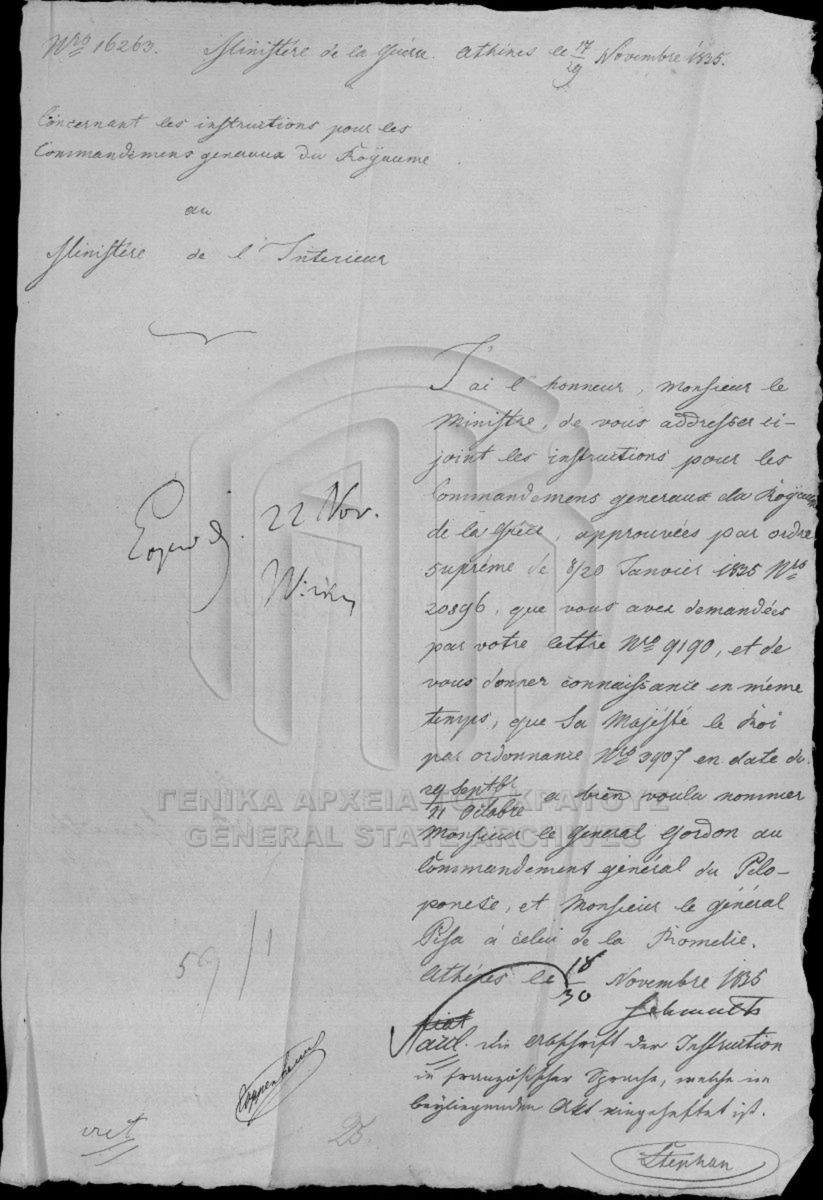 Nro 16263. Ministére de la Guère. Athénes le 17/29 Novembre 1835.
Concernant les instructions pour les
Commandemens generaux du Royaume
au
Ministère de l'Interieur
J'ai l'honneur, Monsieur le
Ministre, de vous addresser ci-
joint les instructions pour les
Commandemens generaux du Royaume
de la Grèce, approuvées par ordre
suprème de 8/20 Janvier 1835 Nro
20896, que vous avez demandées
par votre lettre Nro 9190, et de
vous donner connaissance en mème
temps, que Sa Majésté le Roi
par ordonnance Nro 3907 en date du
29 Septbr/11 Octobre a bien voulu nommer
Monsieur le General Gordon au
Commandement général du Pélo-
ponese, et Monsieur le général
Pisa à celui de la Romelie.
Athénes le 18/30 Novembre 1835
Schmaltz
22 Nov.
59/1
die Abschrift der Instruction
in französischer Sprache, welche im
beyliegenden Akt eingeheftet ist.
Stephan
ΓΕΝΙΚΑ ΑΡΧΕΙΑ ΤΟΥ ΚΡΑΤΟΥΣ
GENERAL STATE ARCHIVES